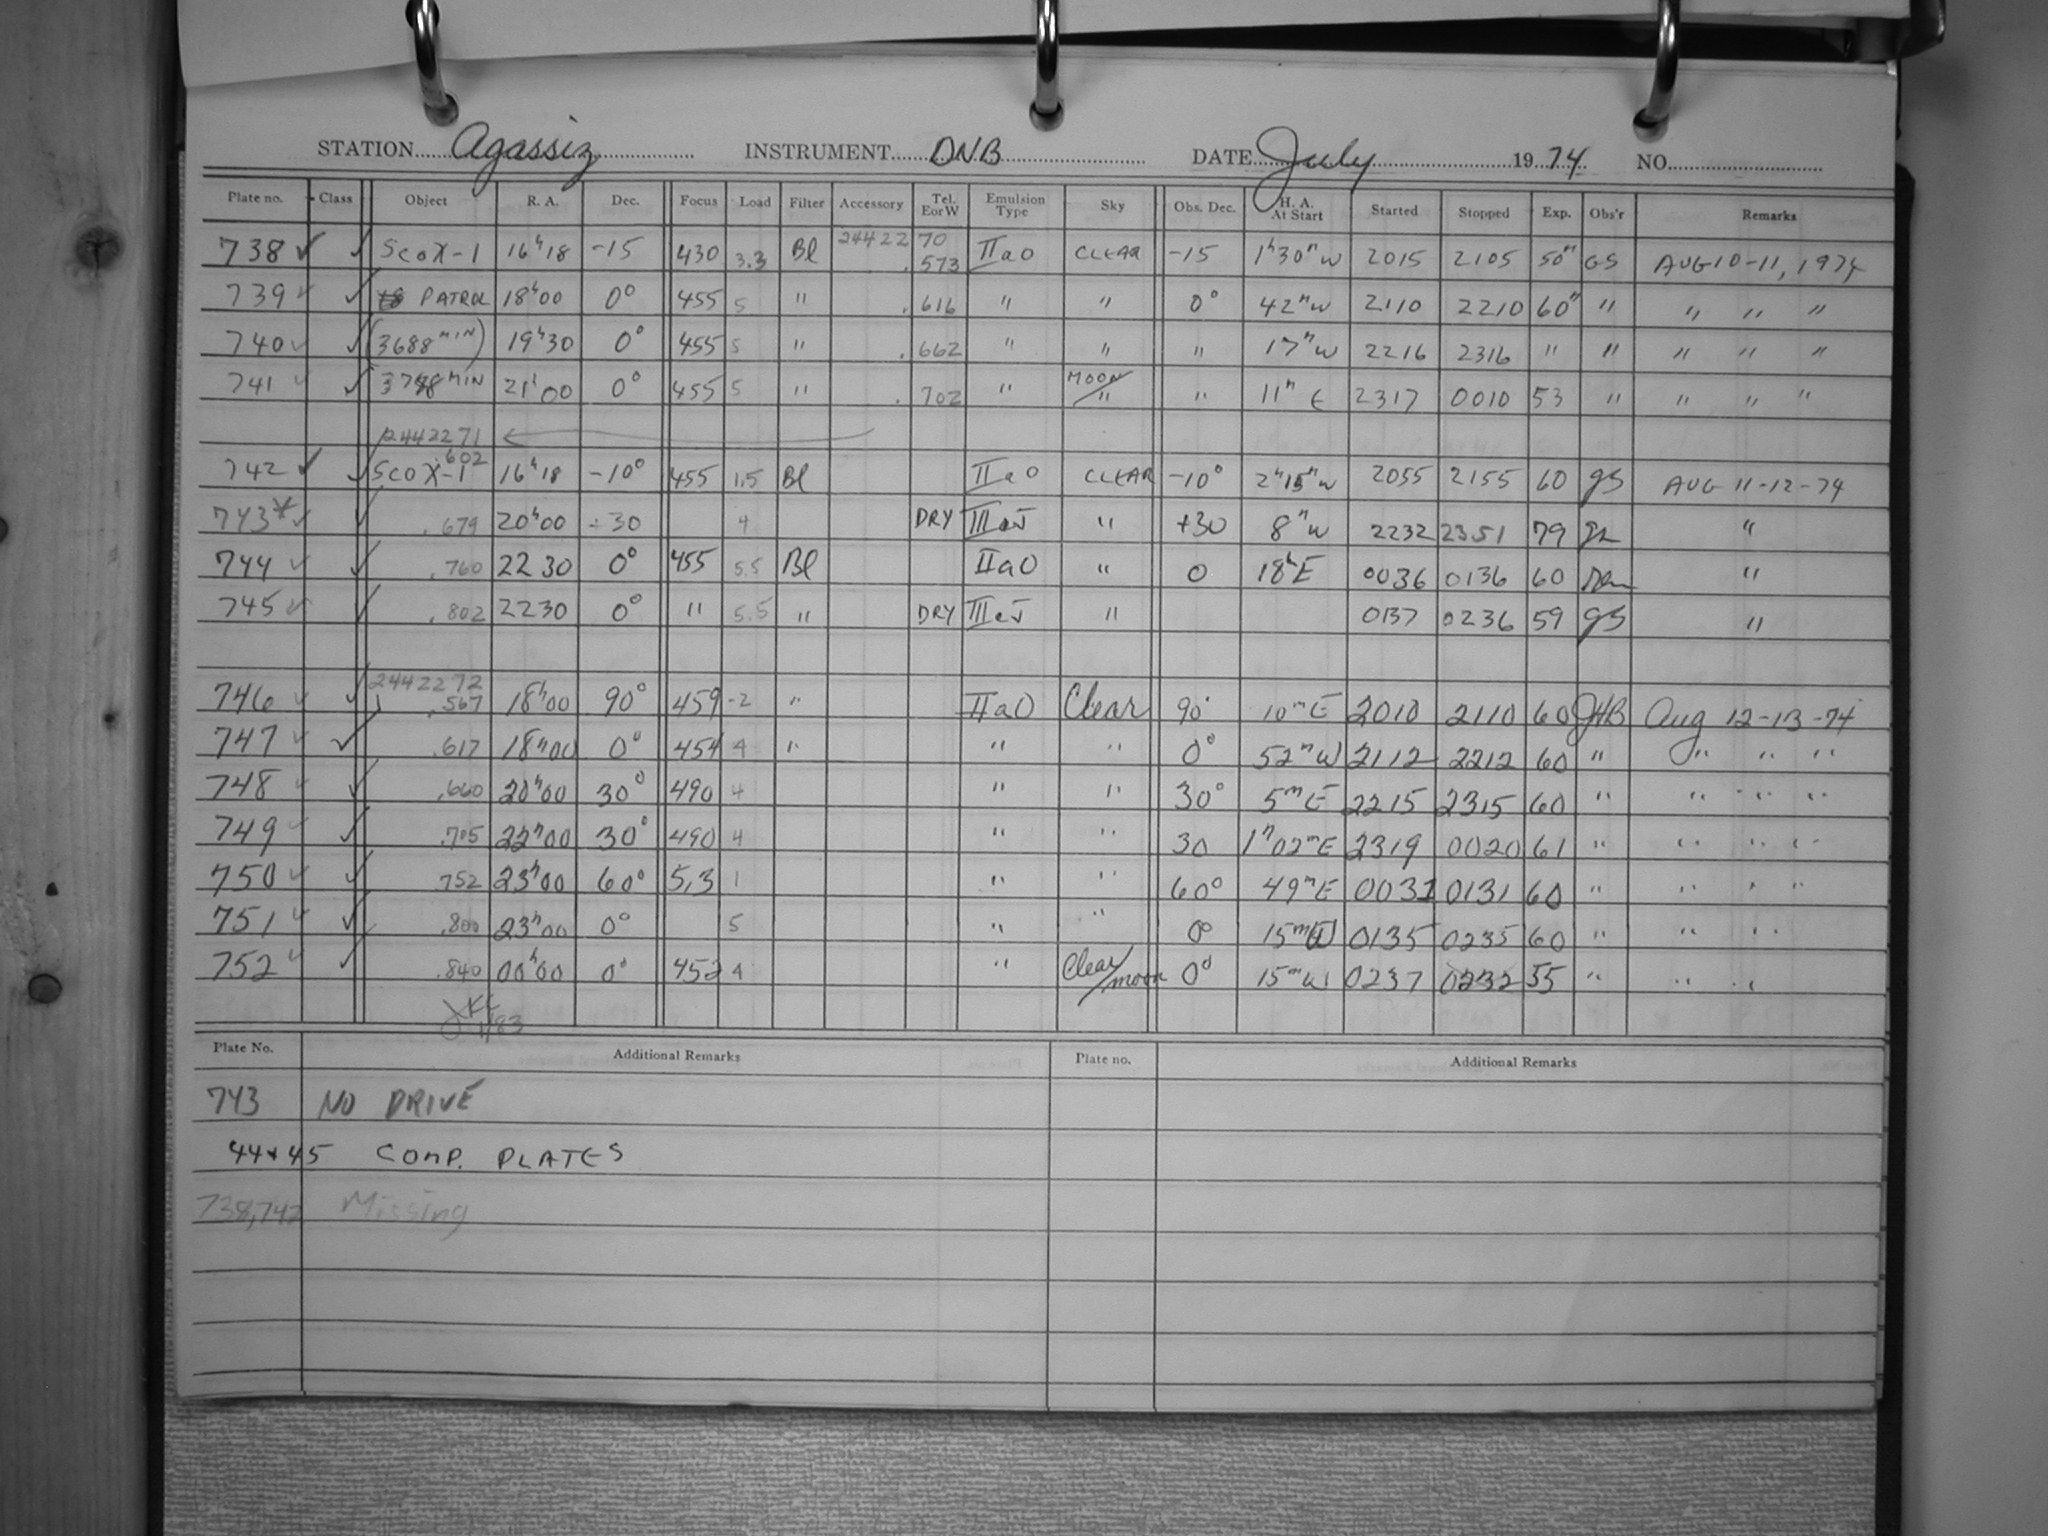 STATION Agassiz INSTRUMENT DNB DATE July 1974 NO.
Plate no. Class Object R. A. Dec. Focus Load Filter Accessory Tel. E or W Emulsion Type Sky Obs. Dec. H. A. At Start Started Stopped Exp. Obs'r Remarks
738 ✓ ✓ Sco X-1 16h18 -15 430 3.3 Bl 24422 70 .573 IIaO CLEAR -15 1h30m W 2015 2105 50m GS AUG 10-11, 1974
739 ✓ ✓ PATROL 18h00 0° 455 5 " .616 " " 0° 42m W 2110 2210 60m " " " "
740 ✓ ✓ (3688 MIN) 19h30 0° 455 5 " .662 " " " 17m W 2216 2316 " " " " "
741 ✓ ✓ MIN 21h00 0° 455 5 " .702 " MOON/" " 11m E 2317 0010 53 " " " "
2442271 ←
742 ✓ ✓ Sco X-1 .602 16h18 -10° 455 1.5 Bl IIaO CLEAR -10° 2h15m W 2055 2155 60 GS AUG 11-12-74
743* ✓ ✓ .679 20h00 +30 4 DRY IIIaJ " +30 8m W 2232 2351 79 "
744 ✓ ✓ .760 22 30 0° 455 5.5 Bl IIaO " 0 18h E 0036 0136 60 "
745 ✓ ✓ .802 2230 0° " 5.5 " DRY IIIaJ " 0137 0236 59 GS "
746 ✓ ✓ 2442272 .567 18h00 90° 459 -2 " IIaO Clear 90° 10m E 2010 2110 60 JHB Aug 12-13-74
747 ✓ ✓ .617 18h00 0° 454 4 " " " 0° 52m W 2112 2212 60 " " " "
748 ✓ ✓ .660 20h00 30° 490 4 " " 30° 5m E 2215 2315 60 " " " "
749 ✓ ✓ .705 22h00 30° 490 4 " " 30 1h02m E 2319 0020 61 " " " "
750 ✓ ✓ .752 23h00 60° 5,3 1 " " 60° 49m E 0031 0131 60 " " " "
751 ✓ ✓ .800 23h00 0° 5 " " 0° 15m W 0135 0235 60 " " "
752 ✓ ✓ .840 00h00 0° 452 4 " Clear/moon 0° 15m W 0237 0232 55 " " "
1/83
Plate No. Additional Remarks Plate no. Additional Remarks
743 NO DRIVE
44+45 COMP. PLATES
738,742 Missing